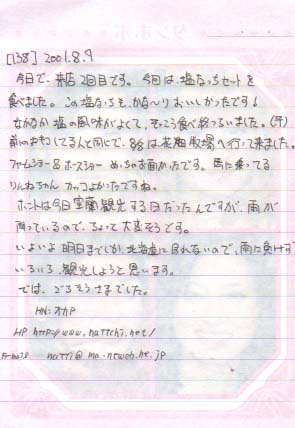 [138] 2001.8.9
今日で、来店2回目です。今回は、塩なっちセットを
食べました。この塩なっちも、かな〜りおいしかったです!
なかなか塩の風味がよくて、そっこう食べ終っちいました。(汗)
前のおきにしてるんと同じで、8/8は花畑牧場へ行って来ました。
ファームショー&ホースショー めっちゃ面白かったです。馬に乗ってる
りんねちゃん カッコよかったですね。
ホントは今日室蘭観光する日だったんですが、雨が
降っているので、ちょっと大変そうです。
いよいよ明日までしか、北海道に居れないので、雨に負けず
いろいろ、観光しようと思います。
では、ごちそうさまでした。
HN:オカP
HP http://www.nuttchi.net/
E-mail nutti@ma-neweb.ne.jp